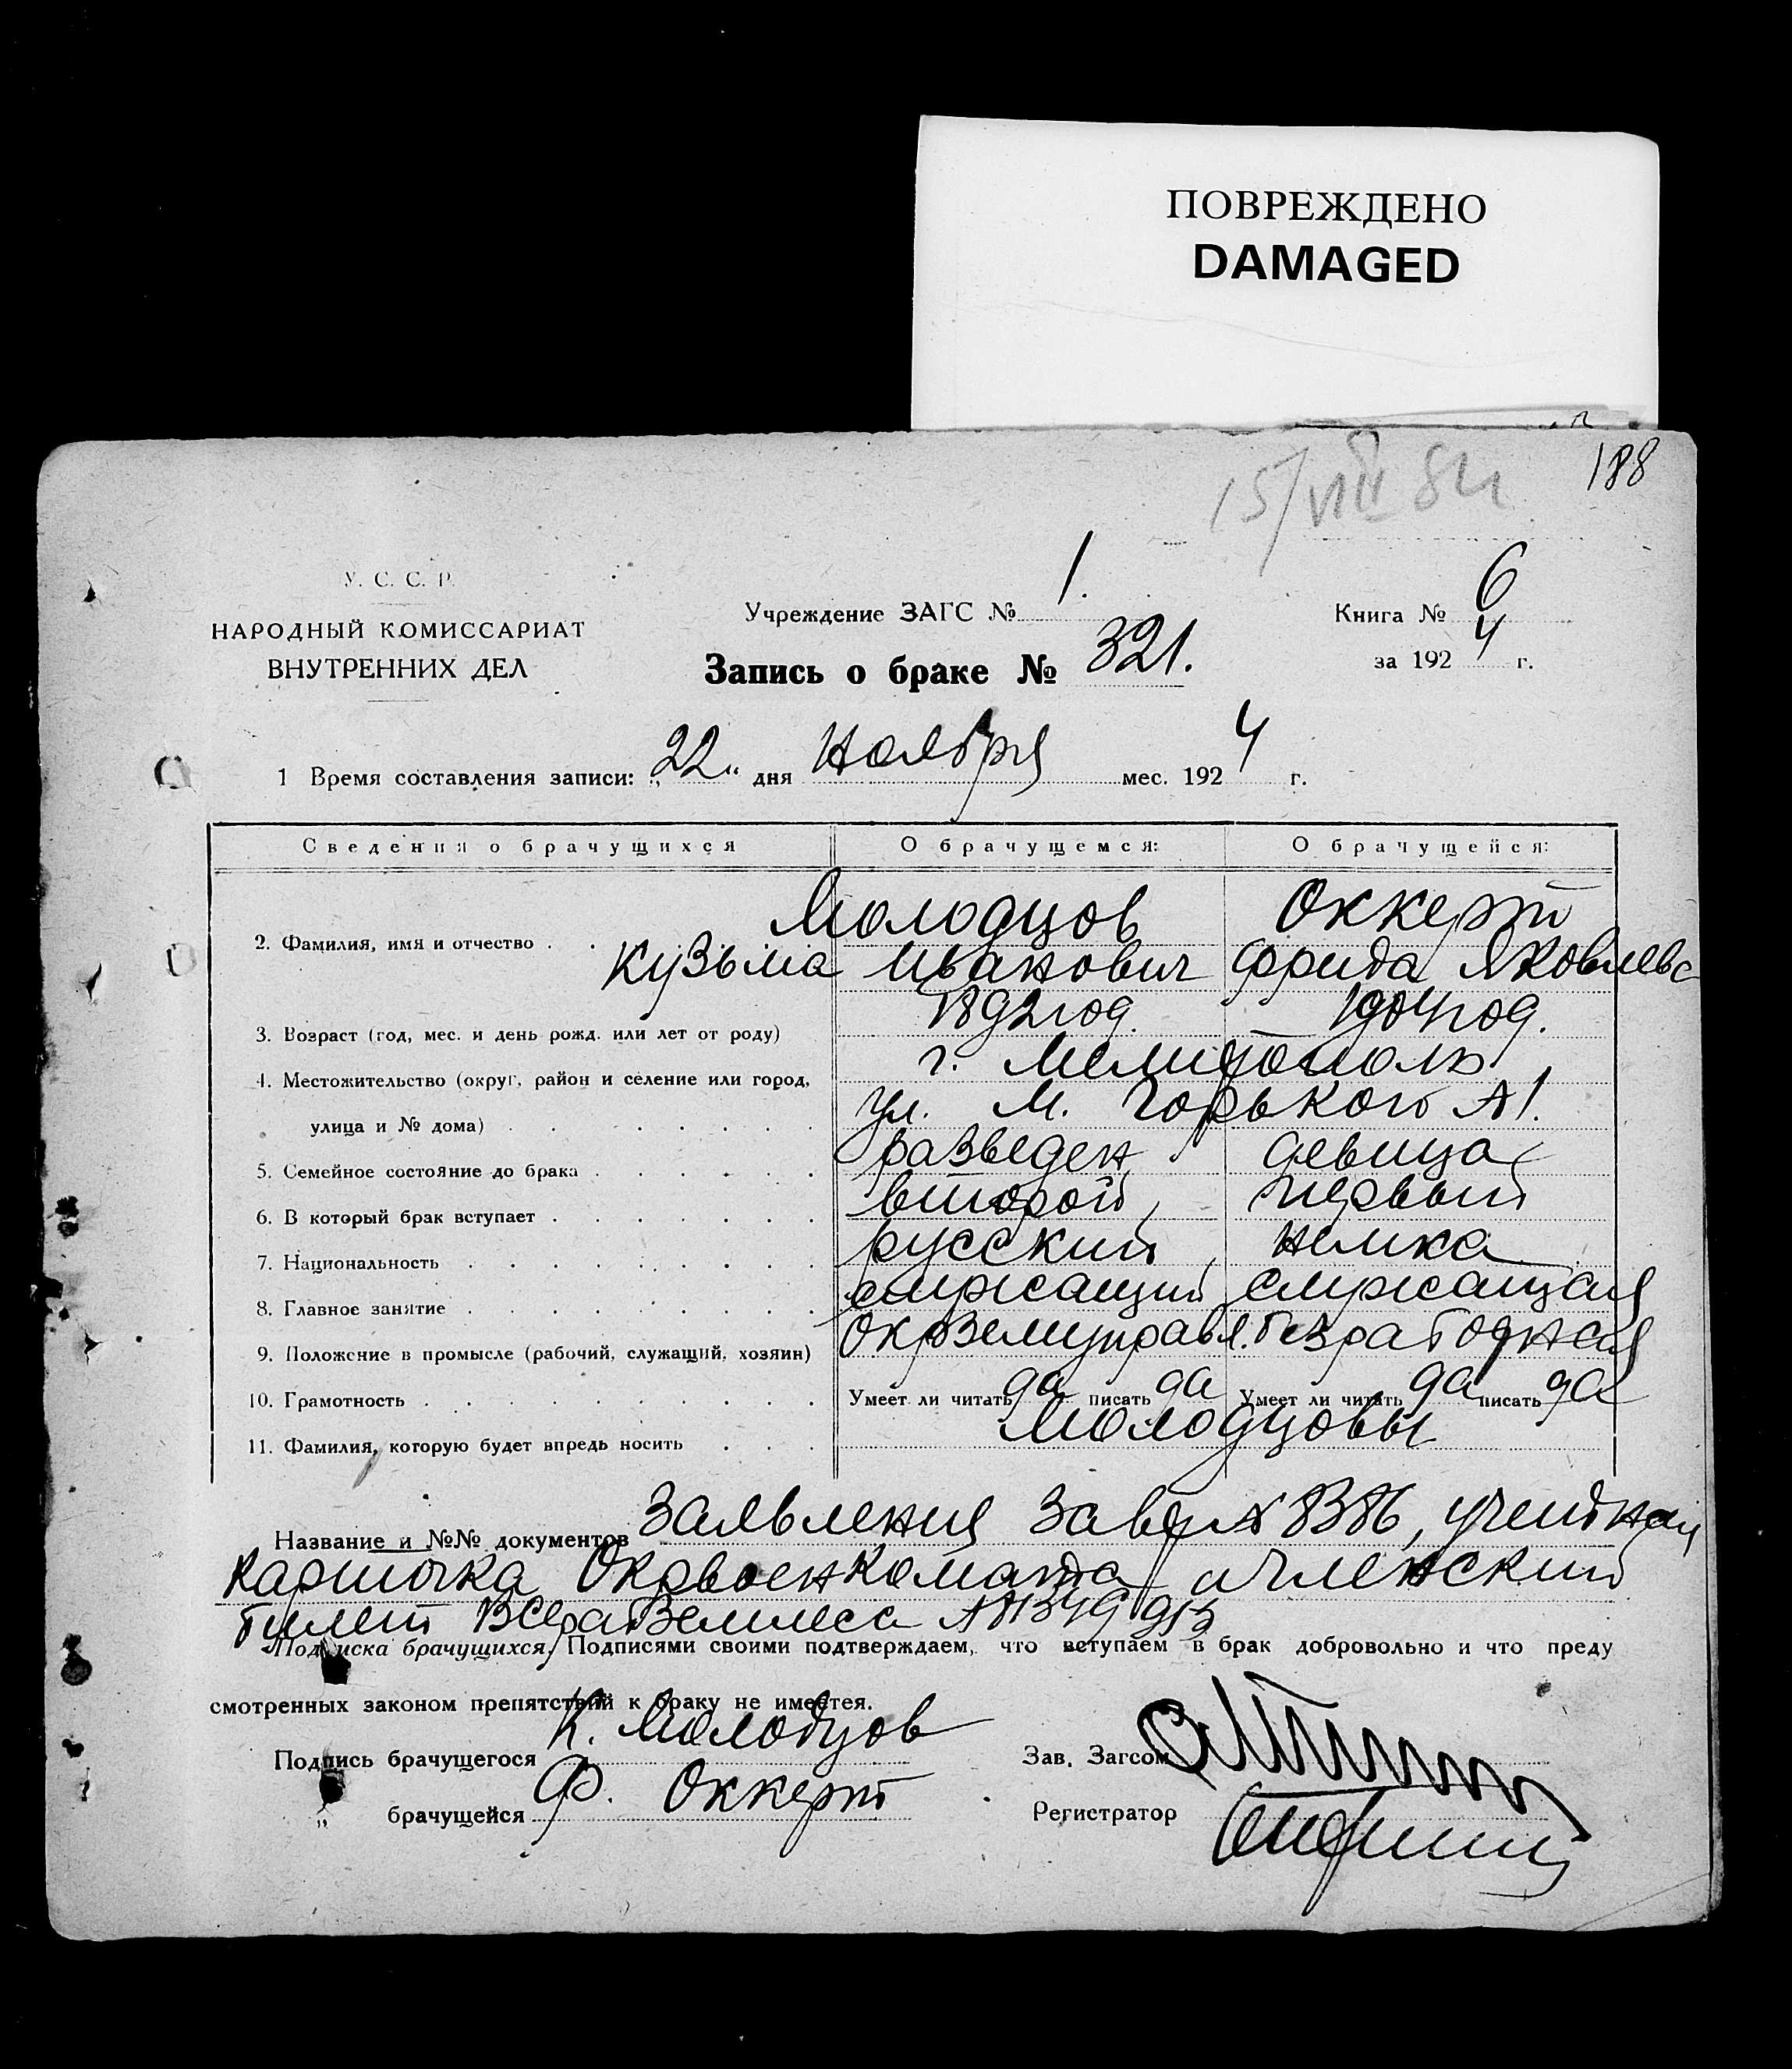 ПОВРЕЖДЕНО
DAMAGED
188
15/VIII 84
У. С. С. Р.
НАРОДНЫЙ КОМИССАРИАТ
ВНУТРЕННИХ ДЕЛ
Учреждение ЗАГС № 1.
Книга № 6
Запись о браке № 321.
за 1924 г.
1 Время составления записи: „22" дня Ноября мес. 1924 г.
Сведения о брачущихся О брачущемся: О брачущейся:
2. Фамилия, имя и отчество Молодцов Оккерт
Кузьма Иванович Фрида Яковлевс
3. Возраст (год, мес. и день рожд. или лет от роду) 1892 год. 1904 год.
4. Местожительство (округ, район и селение или город, г. Мелитополь
улица и № дома) ул. М. Горького № 1.
5. Семейное состояние до брака разведен девица
6. В который брак вступает второй первый
7. Национальность русский немка
8. Главное занятие служащий служащая
9. Положение в промысле (рабочий, служащий, хозяин) Окрземуправл. безработная
10. Грамотность Умеет ли читать да писать да Умеет ли читать да писать да
11. Фамилия, которую будет впредь носить Молодцовы
Название и №№ документов Заявления № 8386, учетная
карточка Окрвоенкомата и членский
билет Всеработземлеса №
Подписка брачущихся. Подписями своими подтверждаем, что вступаем в брак добровольно и что преду
смотренных законом препятствий к браку не имеется.
Подпись брачущегося К. Молодцов
Зав. Загсом
„ брачущейся Ф. Оккерт
Регистратор